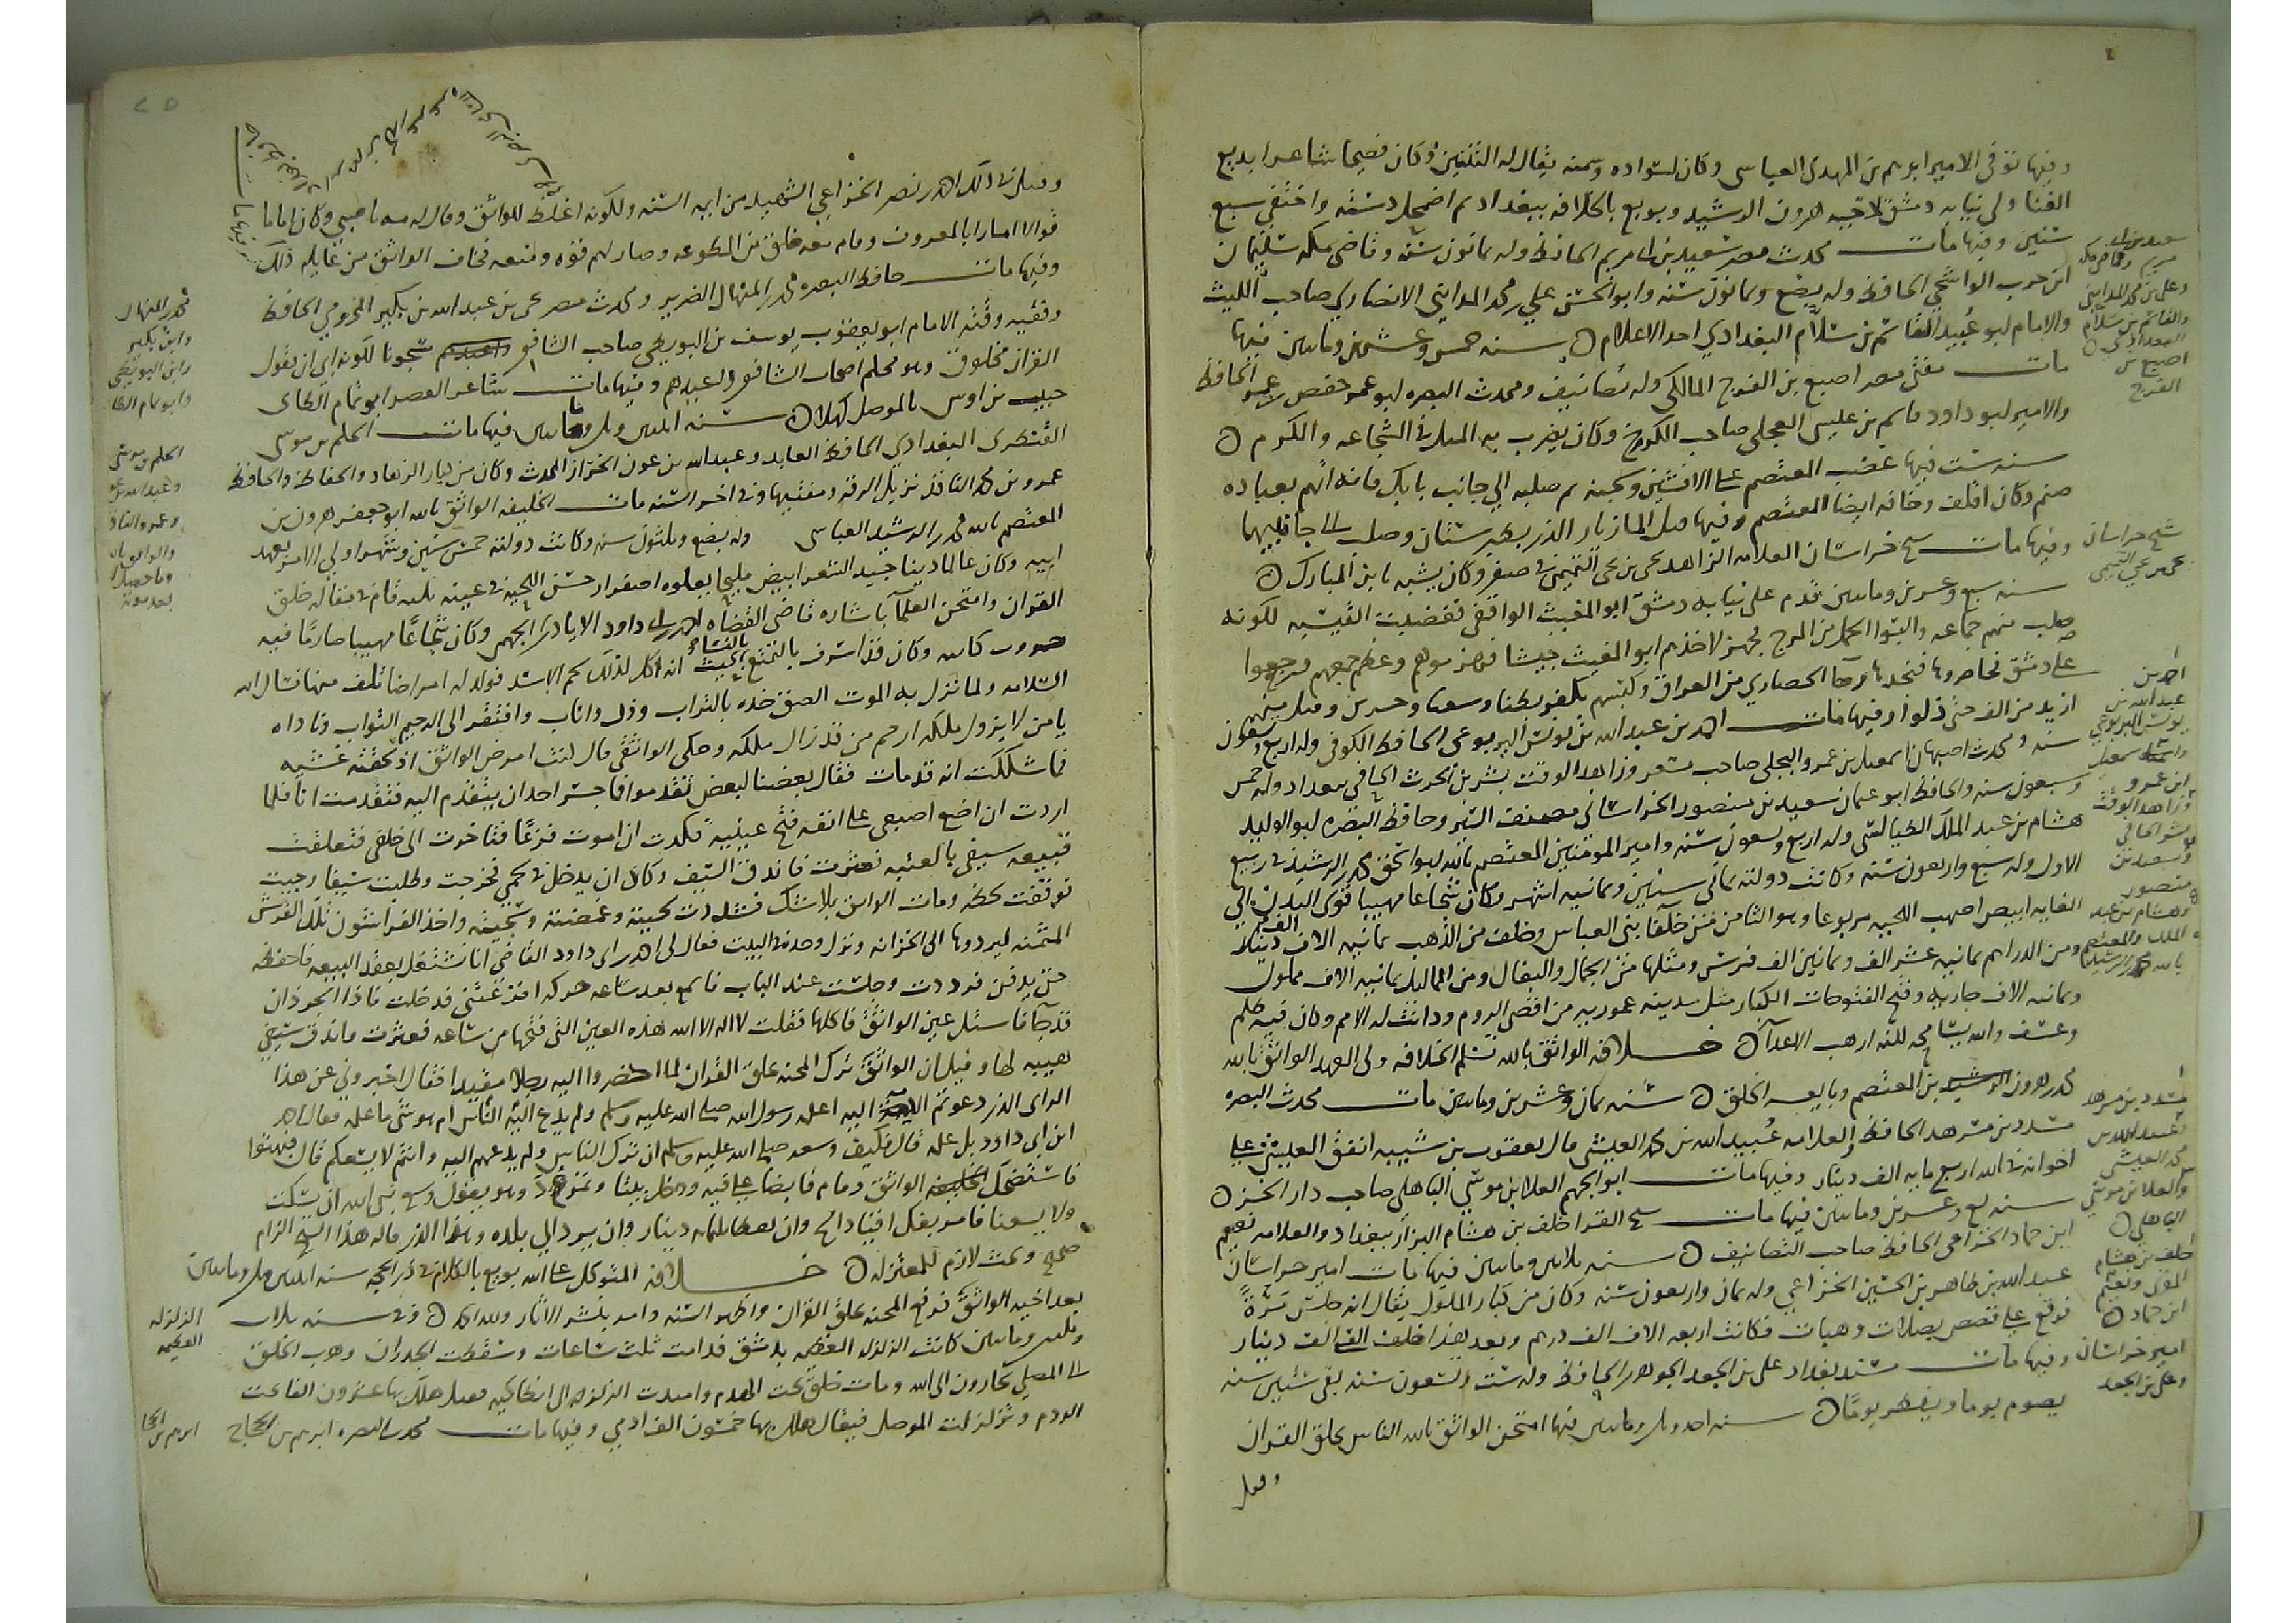 وفيها توفي الامير ابرهيم بن المهدي العباسي وكان لسواده وسمنه يقال له التنين وكان فصيحا شاعرا بديع
الغنا ولي نيابه دمشق لاخيه هرون الرشيد وبويع بالخلافه ببغداد ثم اضمحل دسته واختفى سبع
سنين وفيها مات محدث مصر سعيد بن ابي مريم الحافظ وله ثمانون سنه وقاضي مكه سليمان
ابن حرب الواشحي الحافظ وله بضع وثمانون سنه وابو الحسن علي بن محمد المدايني الاخباري صاحب
والامام ابو عبيد القاسم بن سلام البغدادي احد الاعلام سنه خمس وعشرين ومايتين فيها
مات مفتي مصر اصبغ بن الفرج المالكي وله تصانيف ومحدث البصره ابو عمر حفص بن عمر الحافظ
والامير ابو دلف قاسم بن عيسى العجلي صاحب الكرج وكان يضرب به المثل في الشجاعه والكرم
سنه ست فيها غضب المعتصم على الافشين وسجنه ثم صلبه الى جانب بابك فانه اتهم بعباده
صنم وكان اقلف وخافه ايضا المعتصم وفيها قتل المازيار الذي بطبرستان وصلب الى جانبهما
وفيها مات شيخ خراسان العلامه الزاهد يحيى بن يحيى التميمي في صفر وكان يشبه بابن المبارك
سنه سبع وعشرين ومايتين قدم على نيابه دمشق ابو المغيث الرافقي فعصت القيسيه لكونه
صلب منهم جماعه واخذوا الخيل من المرج فجهز لاخذهم ابو المغيث جيشا فهزموهم وعظم جمعهم فرجعوا
على دمشق فحاصروها فنجدها رجا الحصاري من العراق وكبسهم بكفر بطنا وسقبا وجسرين وقتل منهم
ازيد من الف حتى ذلوا وفيها مات احمد بن عبد الله بن يونس اليربوعي الحافظ الكوفي وله اربع وتسعون
سنه ومحدث اصبهان اسمعيل بن عمرو البجلي صاحب مسعر وزاهد الوقت بشر بن الحرث الحافي ببغداد وله خمس
وسبعون سنه والحافظ ابو عثمان سعيد بن منصور الخراساني مصنف السنن وحافظ البصره ابو الوليد
هشام بن عبد الملك الطيالسي وله اربع وتسعون سنه وامير المومنين المعتصم بالله ابو اسحق محمد بن الرشيد في ربيع
الاول وله سبع واربعون سنه وكانت دولته ثماني سنين وثمانيه اشهر وكان شجاعا مهيبا قوي البدن الى
الغايه ابيض اصهب اللحيه مربوعا وهو الثامن من خلفا بني العباس وخلف من الذهب ثمانيه الاف الف دينار
ومن الدراهم ثمانيه عشر الف وثمانين الف فرس ومثلها من الجمال والبغال ومن المماليك ثمانيه الاف مملوك
وثمانيه الاف جاريه وفتح الفتوحات الكبار مثل مدينه عموريه من اقصى الروم ودانت له الامم وكان فيه ظلم
وعسف والله يسامحه لكنه ارهب الاعدا خلافه الواثق بالله تسلم الخلافه ولي العهد الواثق بالله
هرون بن المعتصم وبايعه الخلق سنه ثمان وعشرين ومايتين مات محدث البصره
مسدد بن مسرهد الحافظ والعلامه عبيد الله بن محمد العيشي قال يعقوب بن شيبه انفق العيشي على
اخوانه في الله اربع مايه الف دينار وفيها مات ابو الجهم العلا بن موسى الباهلي صاحب ذاك الجزء
سنه تسع وعشرين ومايتين فيها مات شيخ القرا خلف بن هشام البزار ببغداد والعلامه نعيم
ابن حماد الخزاعي الحافظ صاحب التصانيف سنه ثلاثين ومايتين فيها مات امير خراسان
عبد الله بن طاهر بن الحسين الخزاعي وله ثمان واربعون سنه وكان من كبار الملوك يقال انه جلس مرة
فوقع على قصص بصلات وهبات فكانت اربعه الاف الف درهم وبعد هذا خلف الفي الف دينار
وفيها مات مسند بغداد علي بن الجعد الجوهري الحافظ وله ست وتسعون سنه بقي ستين سنه
يصوم يوما ويفطر يوما سنه احدى وثلاثين ومايتين فيها امتحن الواثق بالله الناس بخلق القران
وقتل
سعيد بن ابي
مريم وقاضي مكه
وعلي بن محمد المدايني
والقاسم بن سلام
البغدادي
اصبغ بن
الفرج
شيخ خراسان
يحيى بن يحيى التميمي
احمد بن
عبد الله بن
يونس اليربوعي
واسمعيل
ابن عمرو
وزاهد الوقت
بشر الحافي
وسعيد بن
منصور
وهشام بن عبد
الملك والمعتصم
بالله محمد بن الرشيد
مسدد بن مسرهد
وعبيد الله بن
محمد العيشي
والعلا بن موسى
الباهلي
خلف بن هشام
المقري ونعيم
ابن حماد
امير خراسان
وعلي بن الجعد
وقتل في ذلك احمد بن نصر الخزاعي الشهيد من ايمه السنه ولكونه اغلظ للواثق وقال له مه يا صبي وكان اماما
قوالا امارا بالمعروف وقام معه خلق من المطوعه وصار لهم قوه ومنعه فخاف الواثق من غايله ذلك
وفيها مات حافظ البصره محمد بن المنهال الضرير ومحدث مصر يحيى بن عبد الله بن بكير المخزومي الحافظ
وفقيه وقته الامام ابو يعقوب يوسف بن البويطي صاحب الشافعي مسجونا لكونه ابى ان يقول
القران مخلوق وهو معلم اصحاب الشافعي واعبدهم وفيها مات شاعر العصر ابو تمام الطاي
حبيب بن اوس بالموصل كهلا سنه اثنتين وثلاثين ومايتين فيها مات الحكم بن موسى
القنطري البغدادي الحافظ العابد وعبد الله بن عون الخراز المحدث وكان من كبار الزهاد والحفاظ والحافظ
عمرو بن محمد الناقد نزيل الرقه ومفتيها وفي اخر السنه مات الخليفه الواثق بالله ابو جعفر هرون بن
المعتصم بالله محمد بن الرشيد العباسي وله بضع وثلثون سنه وكانت دولته خمس سنين وشهرا ولي الامر بعهد
ابيه وكان عالما دينا جيد الشعر ابيض مليحا يعلوه اصفرار حسن اللحيه في عينه نكته قام في مقاله خلق
القران وامتحن العلما باشاره قاضي القضاه احمد بن ابي داود الايادي الجهمي وكان شجاعا مهيبا صارما فيه
جبروت كابيه وكان قد اسرف بالتمتع بالنساء بحيث انه اكل لذلك لحم الاسد فولد له امراضا تلف منها نسال الله
السلامه ولما نزل به الموت الصق خده بالتراب وذل واناب وافتقر الى الرحيم التواب وناداه
يا من لا يزول ملكه ارحم من قد زال ملكه وحكى الواثقي قال كنت امرض الواثق اذ لحقته غشيه
فما شككت انه قد مات فقال بعضنا لبعض تقدموا فما جسر احد ان يتقدم اليه فتقدمت انا فلما
اردت ان اضع اصبعي على انفه فتح عينيه فكدت ان اموت فزعا فتاخرت الى خلفي فتعلقت
قبيعه سيفي بالعتبه فعثرت فاندق السيف وكاد ان يدخل في لحمي فخرجت وطلبت سيفا وجيت
فوقفت لحظه ومات الواثق بلا شك فشددت لحيته وغمضته وسجيته واخذ الفراشون تلك الفرش
المثمنه ليردوها الى الخزانه وترك وحده في البيت فقال لي احمد بن ابي داود القاضي انا نشتغل بعقد البيعه فاحفظه
حتى يدفن فرددت وجلست عند الباب فاسمع بعد ساعه حركه افزعتني فدخلت فاذا بجرذان
قد جا فاستل عين الواثق فاكلها فقلت لا اله الا الله هذه العين التي فتحها من ساعه فعثرت واندق سيفي
هيبه لها وقيل ان الواثق ترك المحنه بخلق القران لما احضروا اليه رجلا مقيدا فقال اخبروني عن هذا
الراي الذي دعوتم الامه اليه اعلمه رسول الله صلى الله عليه وسلم ولم يدع اليه الناس ام هو شي ما علمه فقال احمد
ابن ابي داود بل علمه قال فكيف وسعه صلى الله عليه وسلم ان ترك الناس ولم يدعهم اليه وانتم لا يسعكم قال فبهتوا
فاستضحك الواثق وقام قابضا على فيه ودخل بيتا وتمدد وهو يقول وسع نبي الله ان يسكت
ولا يسعنا فامر بفك اقياد الشيخ وان يعطا ثلثمايه دينار وان يرد الى بلده وهذا الذي قاله هذا الشيخ الزام
صحيح وبحث لازم للمعتزله خلافه المتوكل على الله بويع بالخلافه في ذي الحجه سنه اثنتين وثلاثين ومايتين
بعد اخيه الواثق فرفع المحنه بخلق القران واظهر السنه وامر بنشر الاثار ولله الحمد وفي سنه ثلاث
وثلثين ومايتين كانت الزلزله العظمى بدمشق فدامت ثلث ساعات وسقطت الجدران وهرب الخلق
الى المصلى يجارون الى الله ومات خلق تحت الهدم وامتدت الزلزله الى انطاكيه فقيل هلك بها عشرون الفا تحت
الردم وتزلزلت الموصل فيقال هلك بها خمسون الف ادمي وفيها مات محدث البصره ابرهيم بن الحجاج
محمد بن المنهال
وابن بكير
وابن البويطي
وابو تمام الطا
الحكم بن موسى
وعبد الله بن عو
وعمرو الناقد
والواثق بالله
وما حصل له
بعد موته
الزلزله
العظيمه
ابرهيم بن الحجا